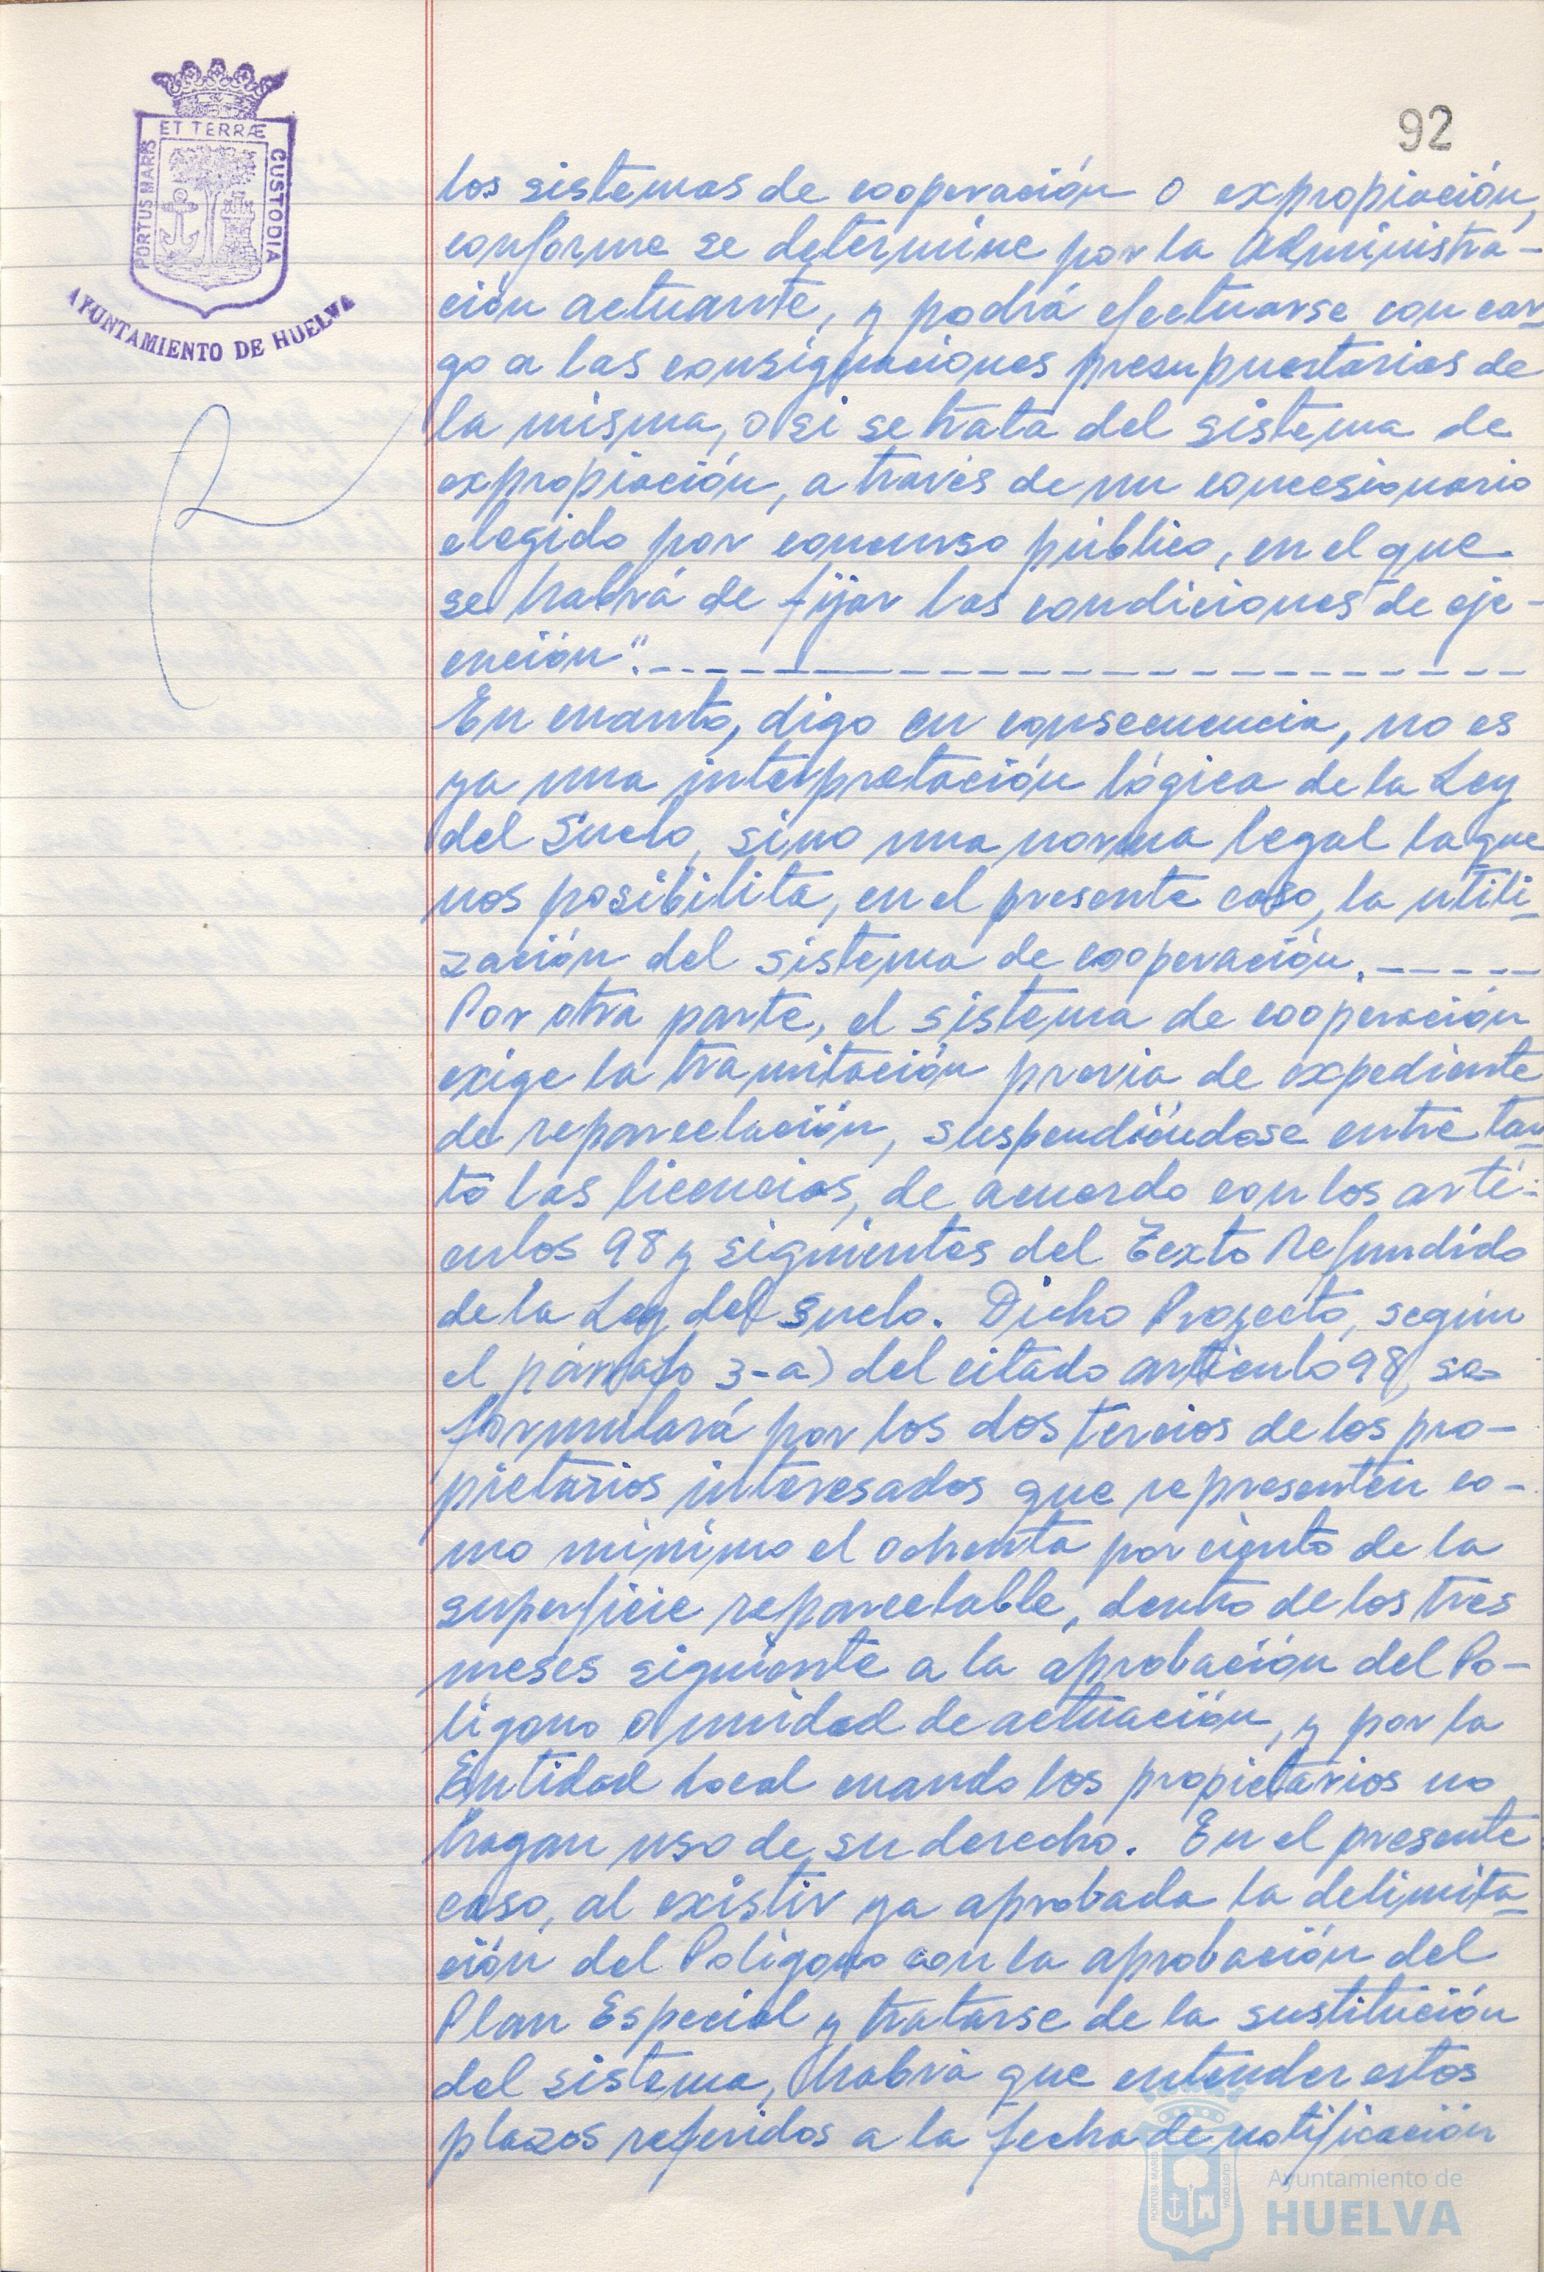 92
ET TERRÆ
PORTUS MARIS
CUSTODIA
AYUNTAMIENTO DE HUELVA
los sistemas de cooperación o expropiación,
conforme se determine por la Administra-
ción actuante, y podrá efectuarse con car-
go a las consignaciones presupuestarias de
la misma, o si se trata del sistema de
expropiación, a través de un concesionario
elegido por concurso público, en el que
se habrá de fijar las condiciones de eje-
cución".
En cuanto, digo en consecuencia, no es
ya una interpretación lógica de la Ley
del Suelo, sino una norma legal la que
nos posibilita, en el presente caso, la utili-
zación del sistema de cooperación.
Por otra parte, el sistema de cooperación
exige la tramitación previa de expediente
de reparcelación, suspendiéndose entre tan-
to las licencias, de acuerdo con los artí-
culos 98 y siguientes del Texto Refundido
de la Ley del Suelo. Dicho Proyecto, según
el párrafo 3-a) del citado artículo 98, se
formulará por los dos tercios de los pro-
pietarios interesados que representen co-
mo mínimo el ochenta por ciento de la
superficie reparcelable, dentro de los tres
meses siguiente a la aprobación del Po-
lígono o unidad de actuación, y por la
Entidad Local cuando los propietarios no
hagan uso de su derecho. En el presente
caso, al existir ya aprobada la delimita-
ción del Polígono con la aprobación del
Plan Especial y tratarse de la sustitución
del sistema, habrá que entender estos
plazos referidos a la fecha de notificación
Ayuntamiento de
HUELVA